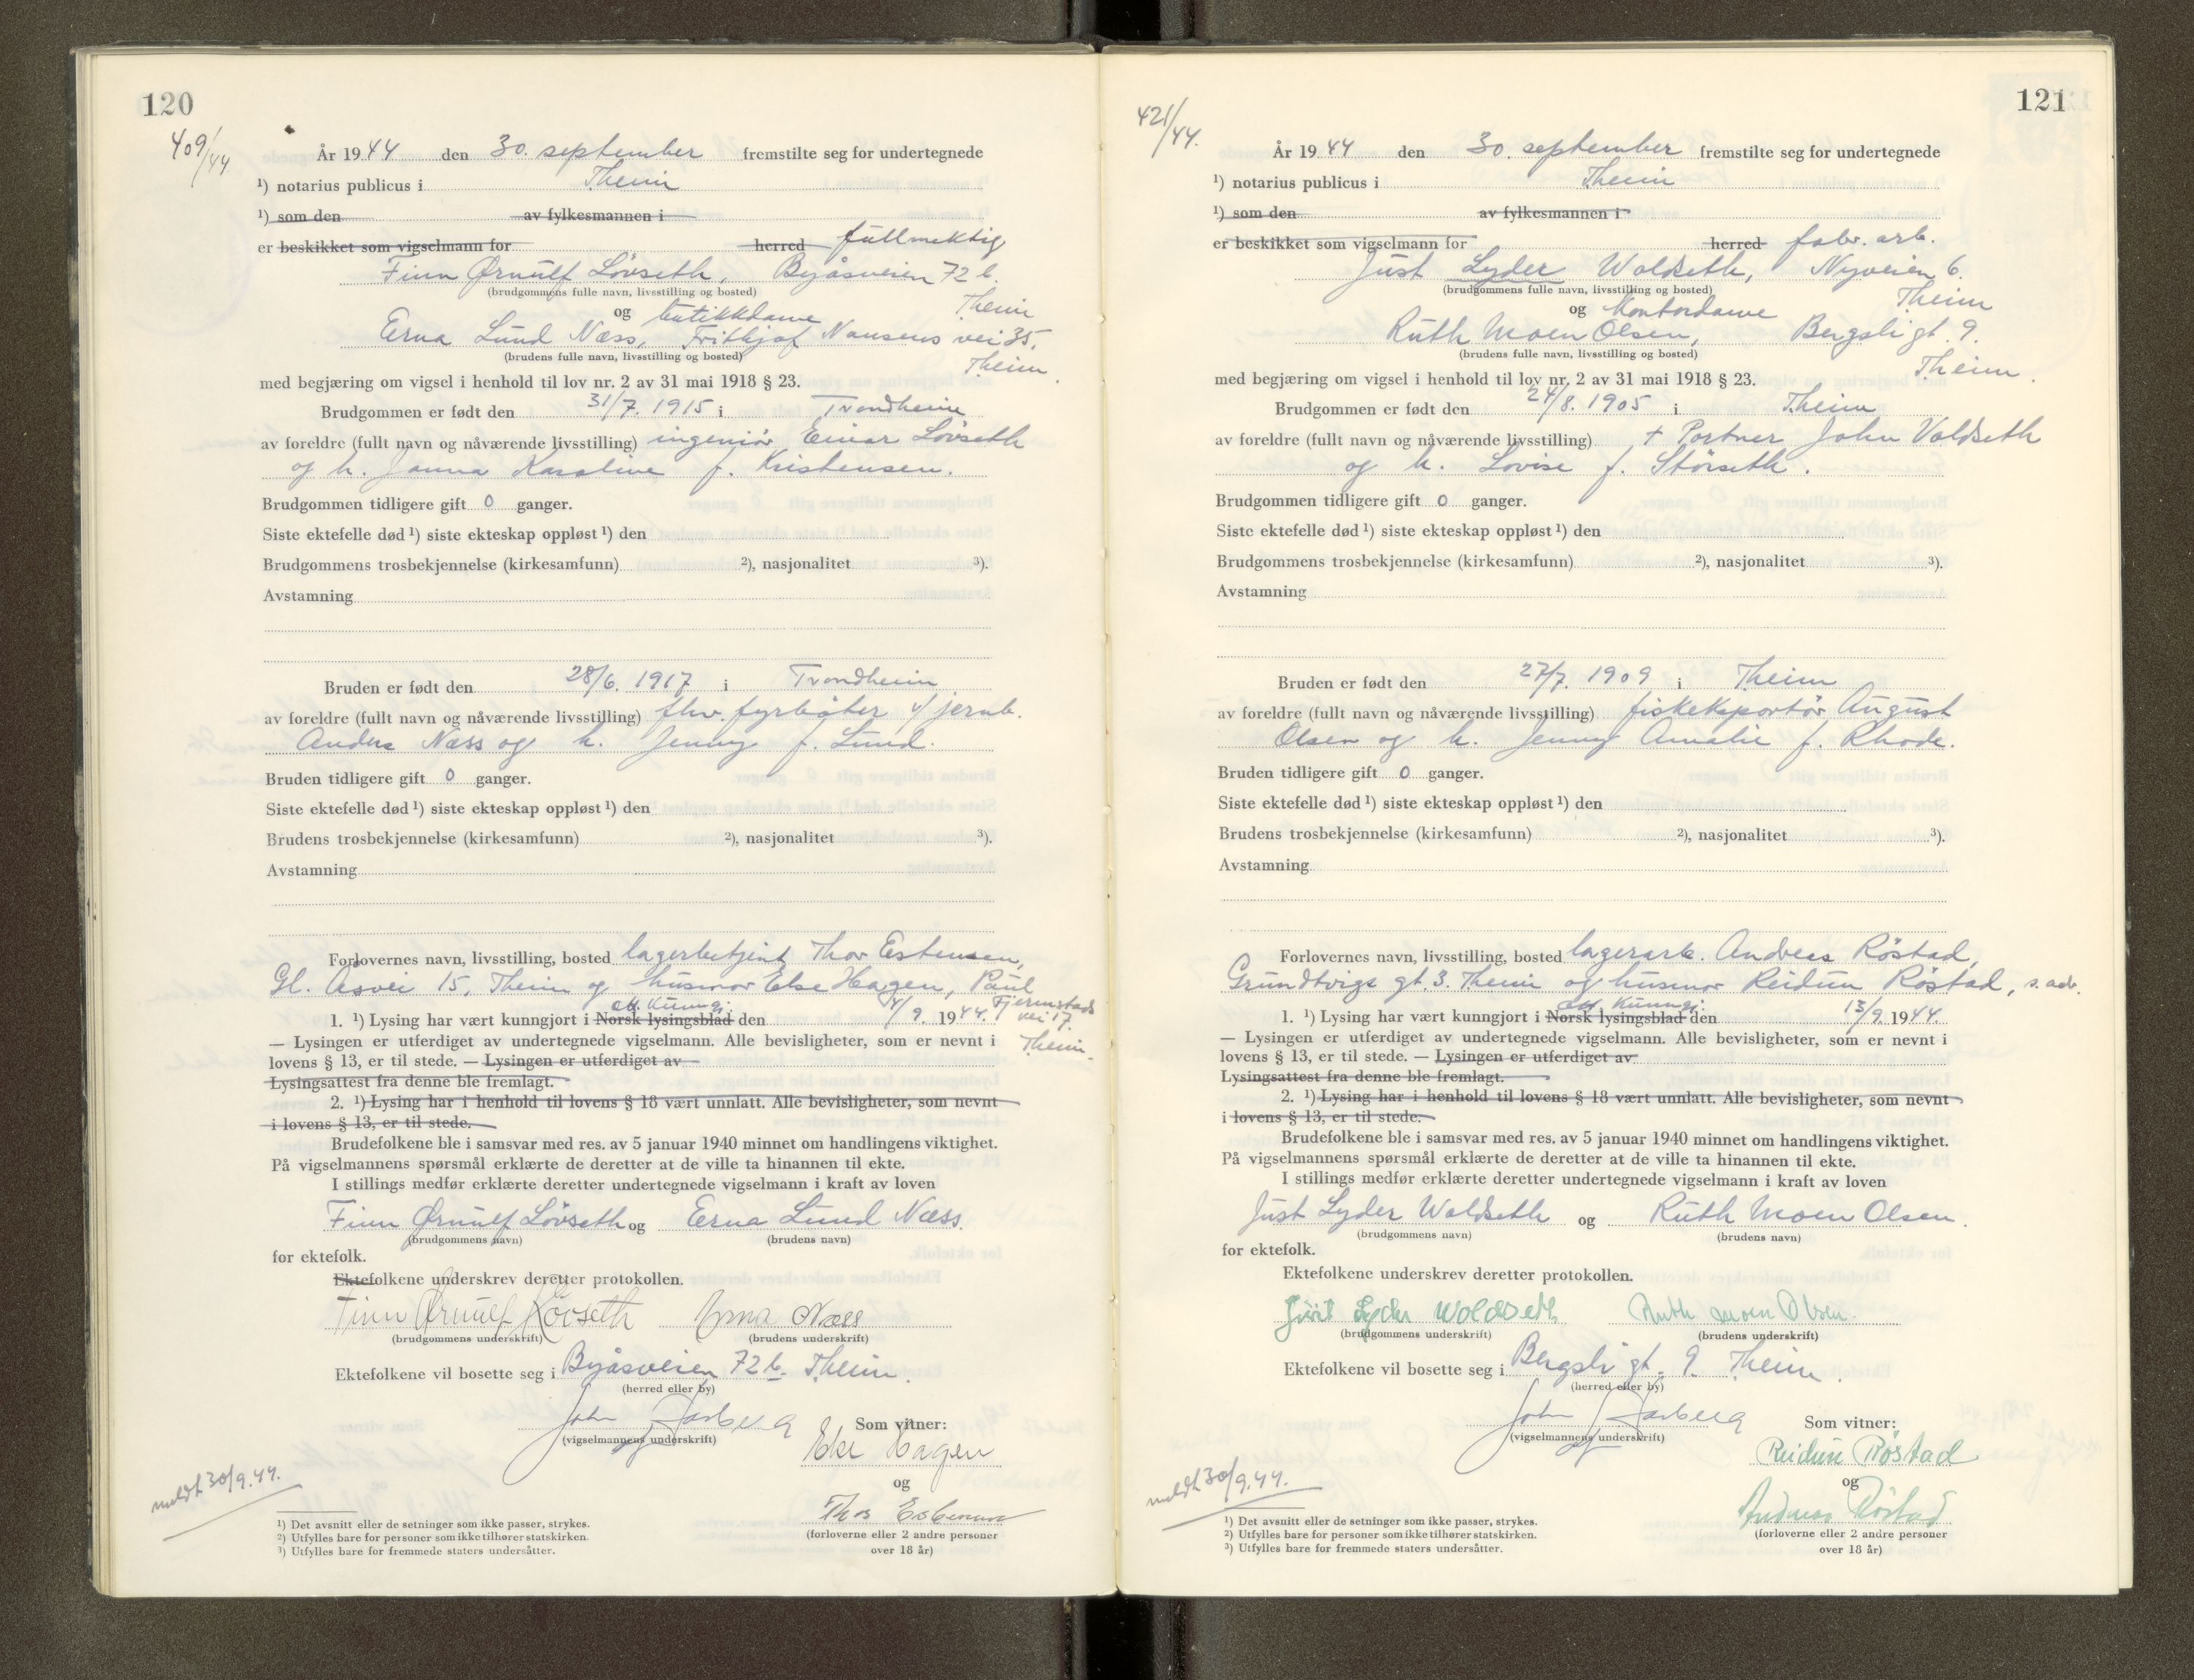 120
409/44
År 1944 den 30. september fremstilte seg for undertegnede
¹) notarius publicus i Theim
¹) som den av fylkesmannen i
er beskikket som vigselmann for herred fullmektig
Finn Ørnulf Lövseth, Byåsveien 72 b.
(brudgommens fulle navn, livsstilling og bosted) Theim
og butikkdame
Erna Lund Næss, Frithjof Nansens vei 35,
(brudens fulle navn, livsstilling og bosted) Theim.
med begjæring om vigsel i henhold til lov nr. 2 av 31 mai 1918 § 23.
Brudgommen er født den 31/7. 1915 i Trondheim
av foreldre (fullt navn og nåværende livsstilling) ingeniör Einar Lövseth
og h. Janna Karoline f. Kristensen.
Brudgommen tidligere gift 0 ganger.
Siste ektefelle død ¹) siste ekteskap oppløst ¹) den
Brudgommens trosbekjennelse (kirkesamfunn) ²), nasjonalitet ³).
Avstamning
Bruden er født den 28/6. 1917 i Trondheim
av foreldre (fullt navn og nåværende livsstilling) fhv. fyrböter v/ jernb.
Anders Næss og h. Jenny f. Lund.
Bruden tidligere gift 0 ganger.
Siste ektefelle død ¹) siste ekteskap oppløst ¹) den
Brudens trosbekjennelse (kirkesamfunn) ²), nasjonalitet ³).
Avstamning
Forlovernes navn, livsstilling, bosted lagerbetjent Thor Estensen,
Gl. Åsvei 15, Theim og husmor Else Hagen, Paul
Fjermstads vei 17. Theim.
off. kunngj.
1. ¹) Lysing har vært kunngjort i Norsk lysingsblad den 4/9. 1944.
— Lysingen er utferdiget av undertegnede vigselmann. Alle bevisligheter, som er nevnt i
lovens § 13, er til stede. — Lysingen er utferdiget av
Lysingsattest fra denne ble fremlagt.
2. ¹) Lysing har i henhold til lovens § 18 vært unnlatt. Alle bevisligheter, som nevnt
i lovens § 13, er til stede.
Brudefolkene ble i samsvar med res. av 5 januar 1940 minnet om handlingens viktighet.
På vigselmannens spørsmål erklærte de deretter at de ville ta hinannen til ekte.
I stillings medfør erklærte deretter undertegnede vigselmann i kraft av loven
Finn Ørnulf Lövseth og Erna Lund Næss.
(brudgommens navn) (brudens navn)
for ektefolk.
Ektefolkene underskrev deretter protokollen.
Finn Ørnulf Lövseth Erna Næss
(brudgommens underskrift) (brudens underskrift)
Ektefolkene vil bosette seg i Byåsveien 72 b. Theim.
(herred eller by)
John Aasberg
(vigselmannens underskrift)
Som vitner:
Else Hagen
og
Thor Estensen
(forloverne eller 2 andre personer
over 18 år)
meldt 30/9.44.
¹) Det avsnitt eller de setninger som ikke passer, strykes.
²) Utfylles bare for personer som ikke tilhører statskirken.
³) Utfylles bare for fremmede staters undersåtter.
121
421/44.
År 1944 den 30. september fremstilte seg for undertegnede
¹) notarius publicus i Theim
¹) som den av fylkesmannen i
er beskikket som vigselmann for herred fabr. arb.
Just Lyder Woldseth, Nyveien 6.
(brudgommens fulle navn, livsstilling og bosted) Theim
og Kontordame
Ruth Moen Olsen, Bergsligt. 9.
(brudens fulle navn, livsstilling og bosted) Theim.
med begjæring om vigsel i henhold til lov nr. 2 av 31 mai 1918 § 23.
Brudgommen er født den 24/8. 1905 i Theim
av foreldre (fullt navn og nåværende livsstilling) + Portner John Voldseth
og h. Lovise f. Störseth.
Brudgommen tidligere gift 0 ganger.
Siste ektefelle død ¹) siste ekteskap oppløst ¹) den
Brudgommens trosbekjennelse (kirkesamfunn) ²), nasjonalitet ³).
Avstamning
Bruden er født den 27/7. 1909 i Theim
av foreldre (fullt navn og nåværende livsstilling) fiskeksportör August
Olsen og h. Jenny Amalie f. Rhode.
Bruden tidligere gift 0 ganger.
Siste ektefelle død ¹) siste ekteskap oppløst ¹) den
Brudens trosbekjennelse (kirkesamfunn) ²), nasjonalitet ³).
Avstamning
Forlovernes navn, livsstilling, bosted lagerarb. Andreas Röstad,
Grundtvigs gt. 3. Theim og husmor Reidun Röstad, s. adr.
off. kunngj.
1. ¹) Lysing har vært kunngjort i Norsk lysingsblad den 13/9. 1944.
— Lysingen er utferdiget av undertegnede vigselmann. Alle bevisligheter, som er nevnt i
lovens § 13, er til stede. — Lysingen er utferdiget av
Lysingsattest fra denne ble fremlagt.
2. ¹) Lysing har i henhold til lovens § 18 vært unnlatt. Alle bevisligheter, som nevnt
i lovens § 13, er til stede.
Brudefolkene ble i samsvar med res. av 5 januar 1940 minnet om handlingens viktighet.
På vigselmannens spørsmål erklærte de deretter at de ville ta hinannen til ekte.
I stillings medfør erklærte deretter undertegnede vigselmann i kraft av loven
Just Lyder Woldseth og Ruth Moen Olsen.
(brudgommens navn) (brudens navn)
for ektefolk.
Ektefolkene underskrev deretter protokollen.
Just Lyder Woldseth Ruth Moen Olsen.
(brudgommens underskrift) (brudens underskrift)
Ektefolkene vil bosette seg i Bergsligt. 9. Theim.
(herred eller by)
John Aasberg
(vigselmannens underskrift)
Som vitner:
Reidun Röstad
og
Andreas Röstad
(forloverne eller 2 andre personer
over 18 år)
meldt 30/9.44.
¹) Det avsnitt eller de setninger som ikke passer, strykes.
²) Utfylles bare for personer som ikke tilhører statskirken.
³) Utfylles bare for fremmede staters undersåtter.